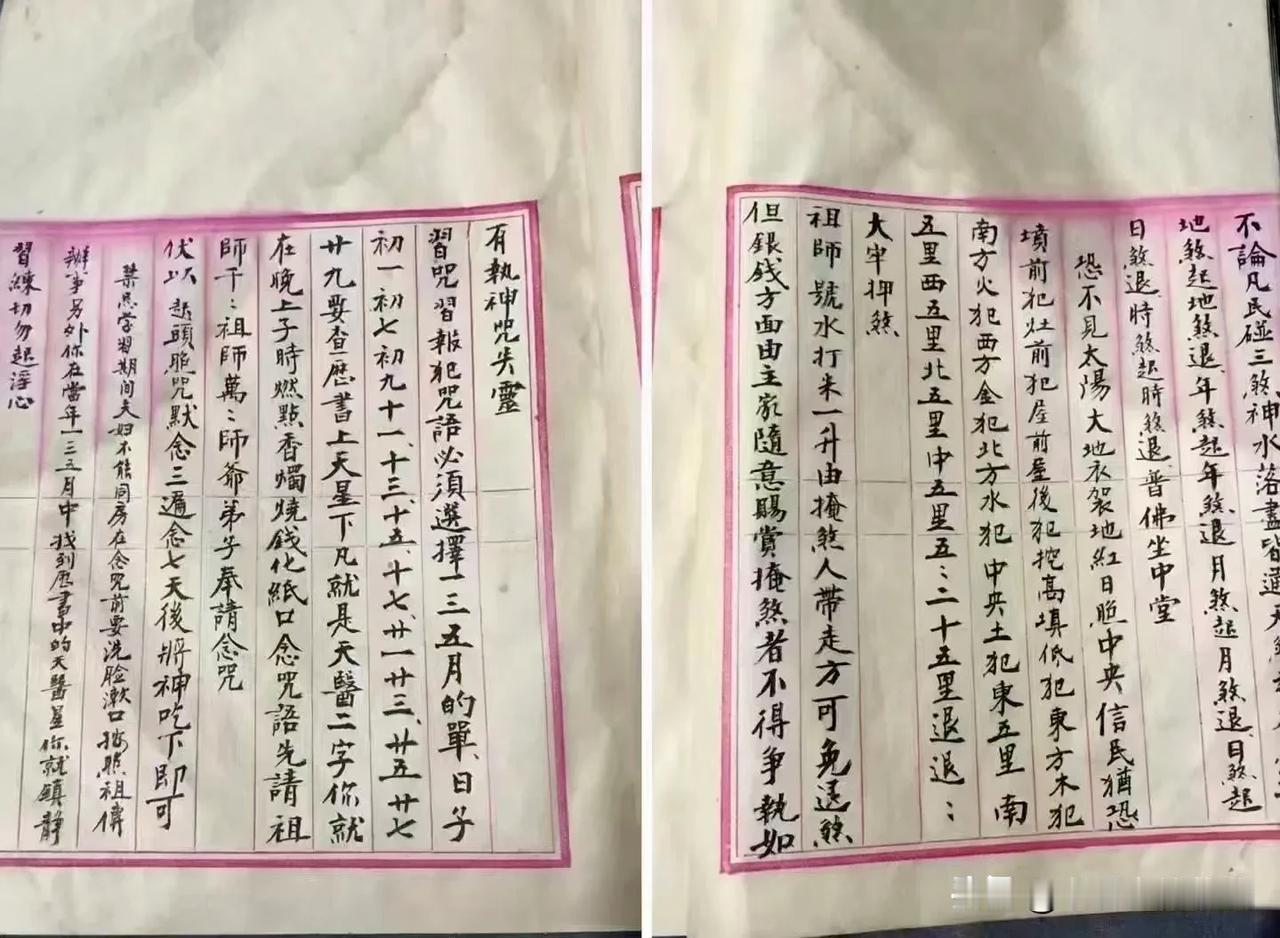 不論凡民碰三煞神水落盡皆通
地煞起地煞退、年煞起年煞退月煞起月煞退、日煞起
日煞退、時煞起時煞退、普佛坐中堂
恐不見太陽大地衣架地紅日照中央信民猶恐
墳前犯灶前犯屋前屋後犯挖高填低犯東方木犯
南方火犯西方金犯北方水犯中央土犯東五里南
五里西五里北五里中五里五：二十五里退退：
大牢押煞
祖師號水打米一升由掩煞人帶走方可免退煞
但銀錢方面由主家隨意賜賞掩煞者不得爭執如
有執神咒失靈
習咒習報犯咒語必須選擇一三五月的單、日子
初一初七初九十一、十三、十五、十七、廿一廿三、廿五廿七
廿九要查一歷書上天星下凡就是天醫二字你就
在晚上子時燃點香燭燒錢化紙口念咒語先請祖
師千：祖師萬：師爺弟子奉請念咒
伏以 起頭脆咒默念三遍念七天後將神吃下即可
禁忌学習期间夫妇不能同房在念咒前要洗脸漱口按照祖傳
辦事另外你在當年一三五月中找到历書中的天醫星你就鎮静
習練切勿起淫心